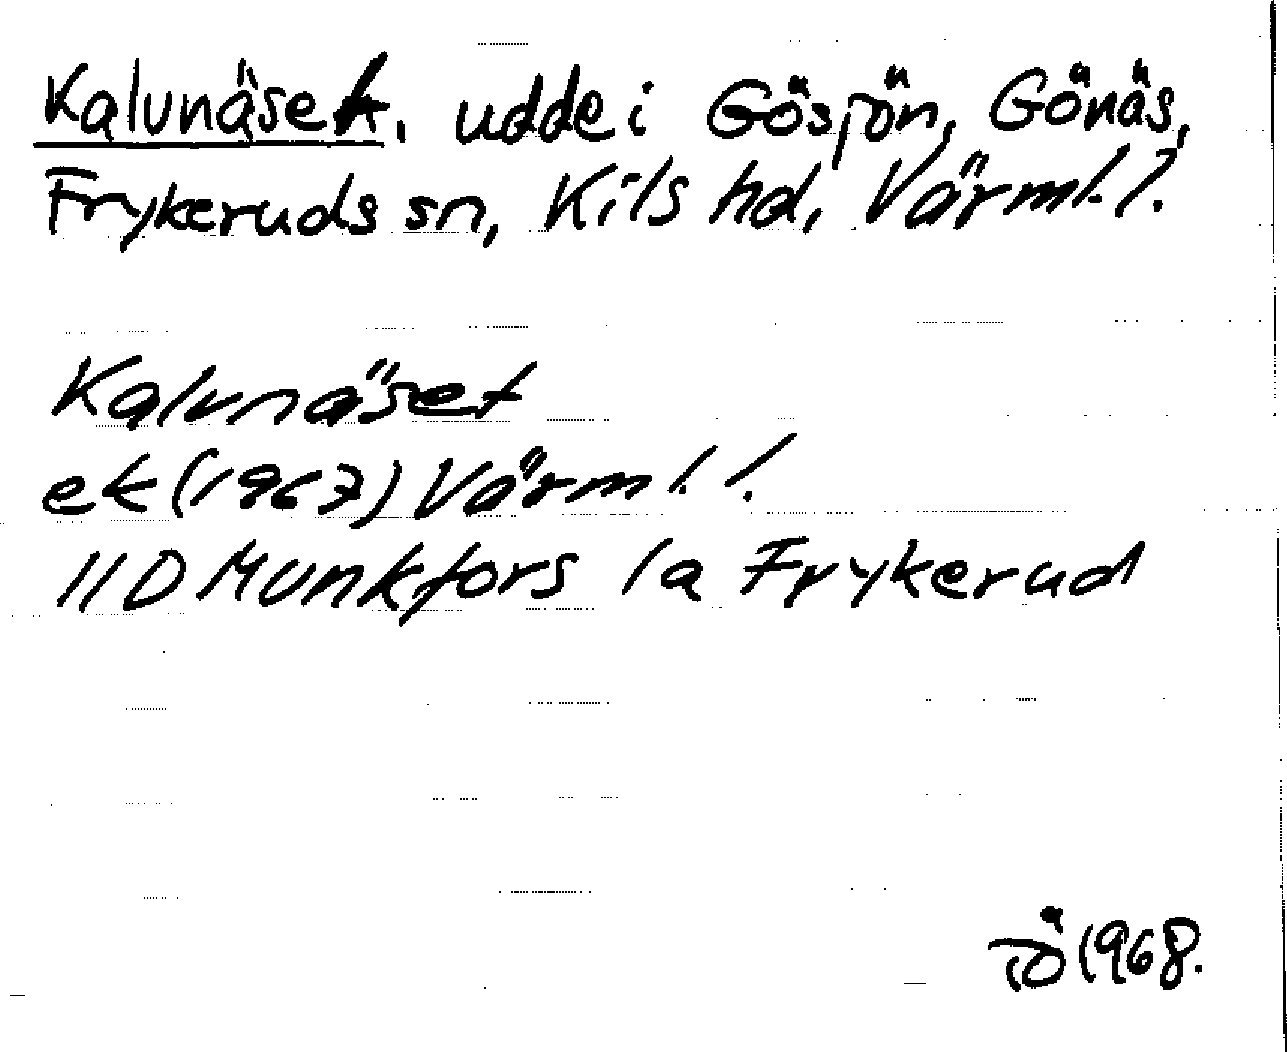 Kalvnäset, udde i Gösjön, Gönäs,
Frykeruds sn, Kils hd, Värml. l.
Kalvnäset
ek (1967) Värml. l.
11D Munkfors 1a Frykerud
TÖ 1968.